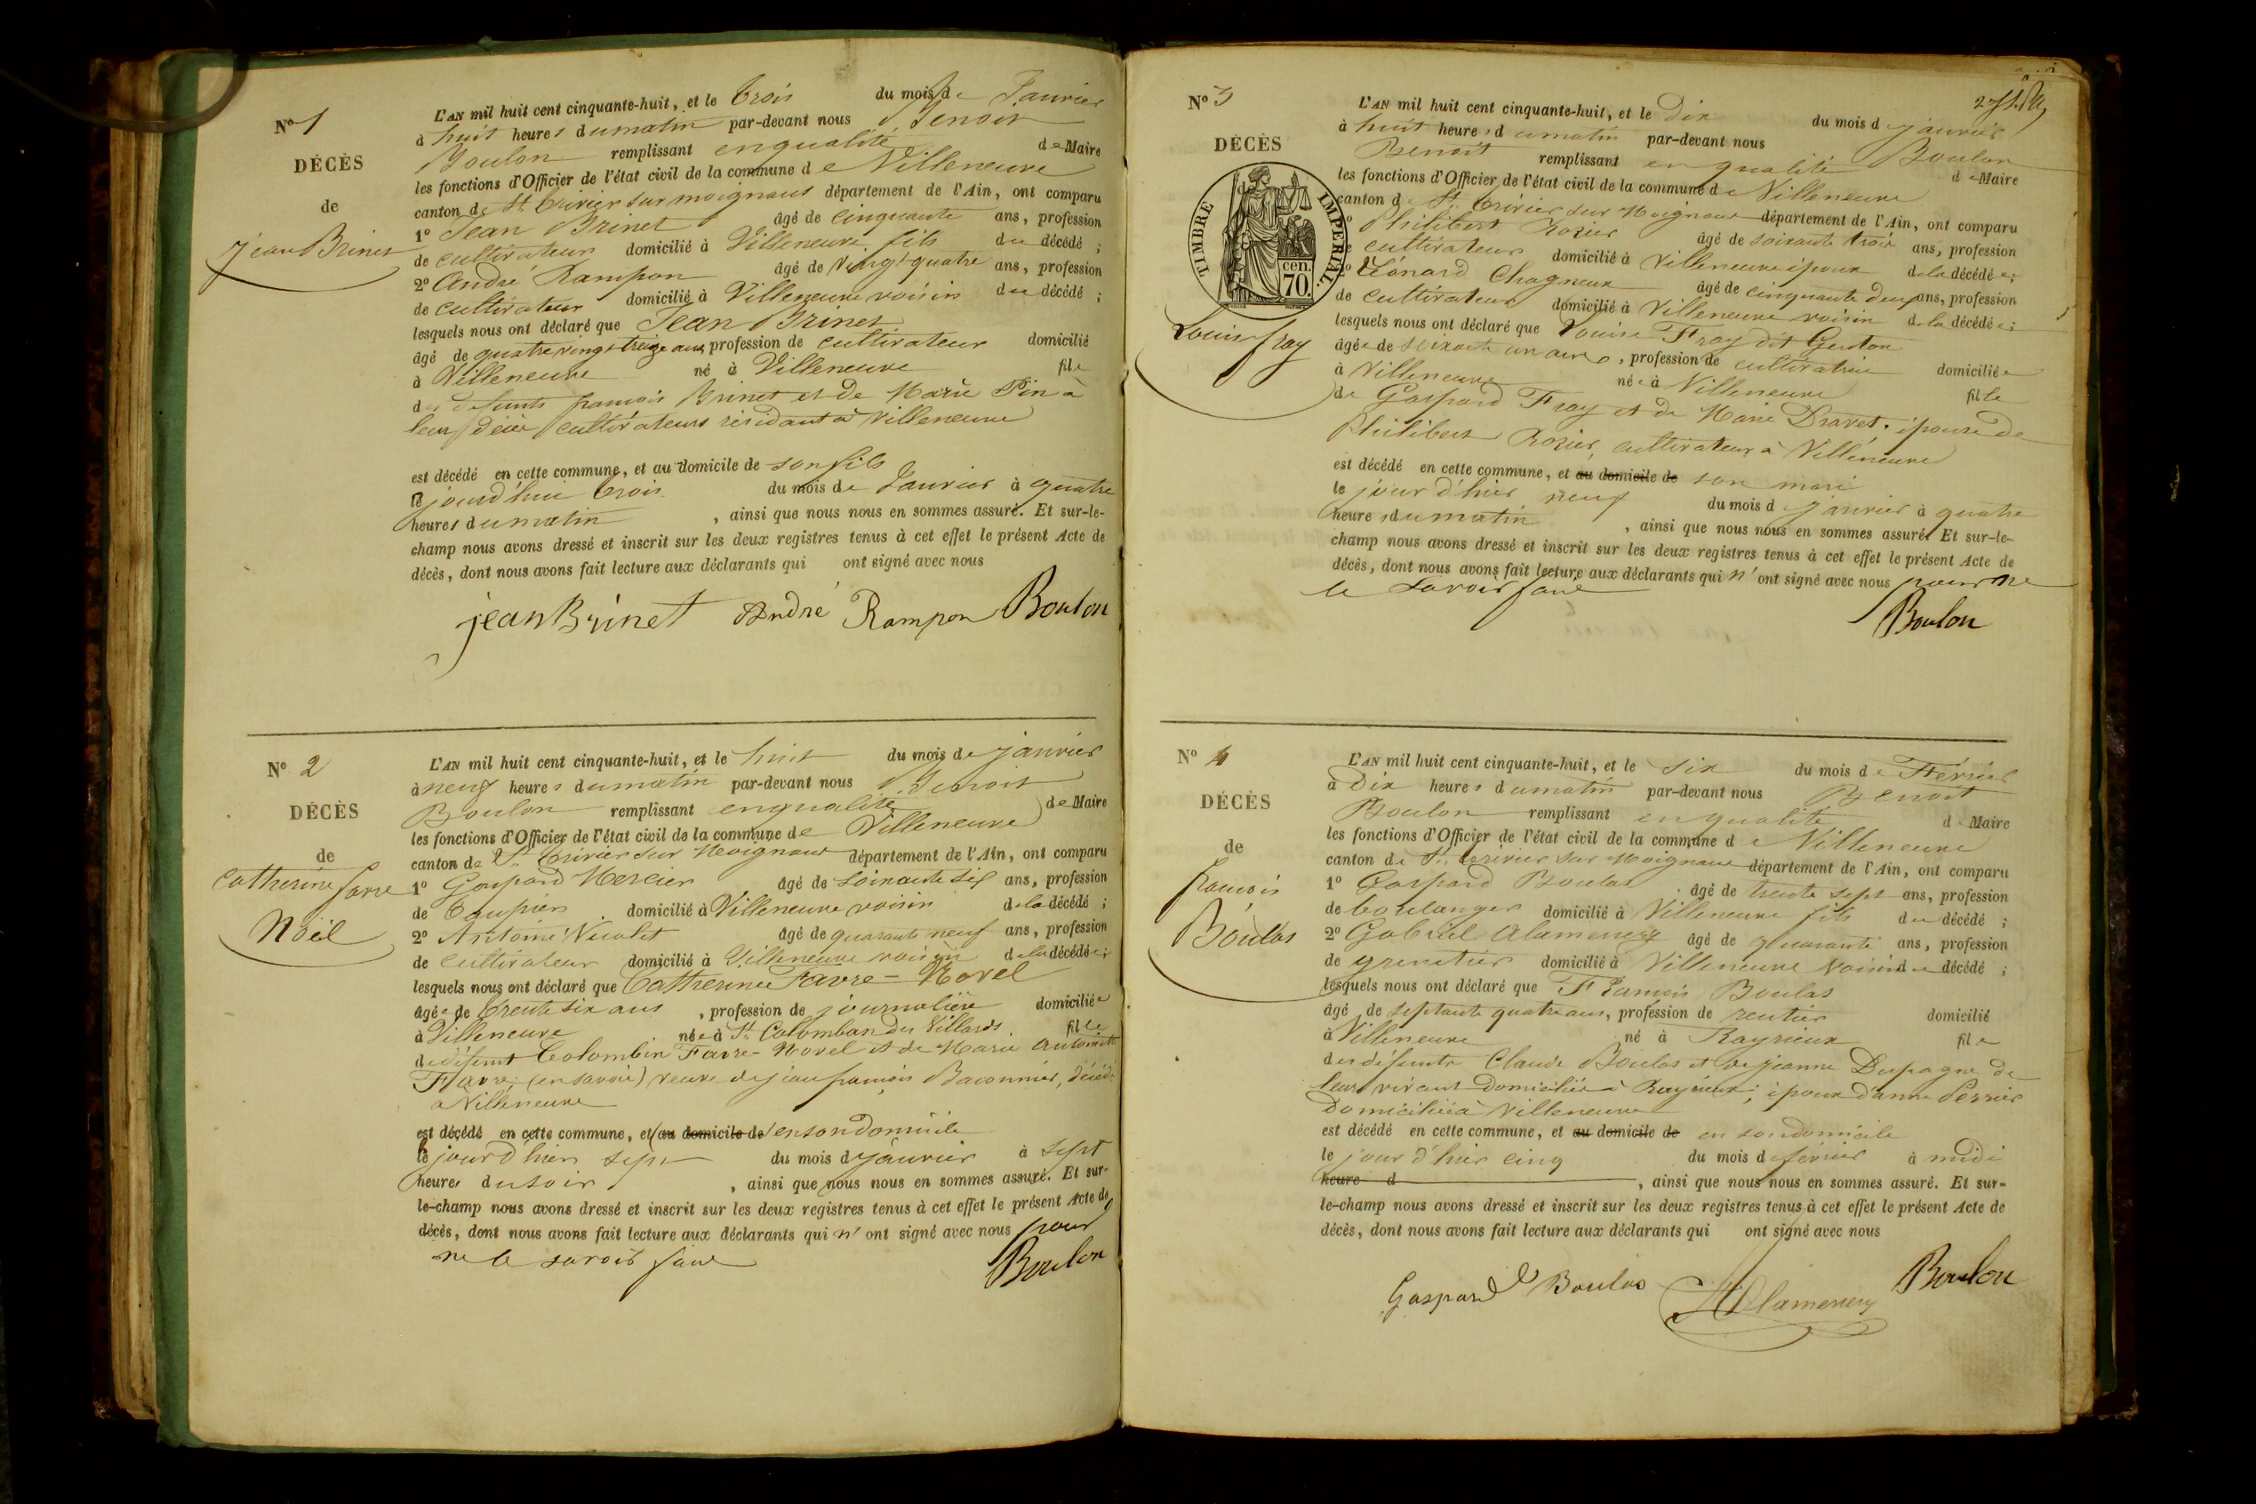 N° 1
DÉCÈS
de
jean Brinet
L'AN mil huit cent cinquante-huit, et le trois du mois de Janvier
à huit heures du matin par-devant nous Benoit
Boulon remplissant en qualité de Maire
les fonctions d'Officier de l'état civil de la commune de Villeneuve
canton de St Trivier sur moignans département de l'Ain, ont comparu
1° Jean Brinet âgé de cinquante ans, profession
de cultivateur domicilié à Villeneuve fils du décédé ;
2° André Rampon âgé de vingt quatre ans, profession
de cultivateur domicilié à Villeneuve voisin du décédé ;
lesquels nous ont déclaré que Jean Brinet
âgé de quatre vingt treize ans, profession de cultivateur domicilié
à Villeneuve né à Villeneuve fils
des defunts francois Brinet et de Marie Pin à
leur décès cultivateurs résidant à Villeneuve
est décédé en cette commune, et au domicile de son fils
le jourd'hui trois du mois de Janvier à quatre
heures du matin , ainsi que nous nous en sommes assuré. Et sur-le-
champ nous avons dressé et inscrit sur les deux registres tenus à cet effet le présent Acte de
décès, dont nous avons fait lecture aux déclarants qui ont signé avec nous
jean Brinet André Rampon Boulon
N° 2
DÉCÈS
de
Catherine favre
Noël
L'AN mil huit cent cinquante-huit, et le huit du mois de janvier
à neuf heures du matin par-devant nous Benoit
Boulon remplissant en qualité de Maire
les fonctions d'Officier de l'état civil de la commune de Villeneuve
canton de St Trivier sur Moignans département de l'Ain, ont comparu
1° Gaspard Mercier âgé de soixante six ans, profession
de domicilié à Villeneuve voisin de la décédé ;
2° Antoine Nicolet âgé de quarante neuf ans, profession
de cultivateur domicilié à Villeneuve voisin de la décédée ;
lesquels nous ont déclaré que Catherine Favre-Novel
âgée de trente six ans , profession de journalière domiciliée
à Villeneuve née à St Colomban des Villards fille
de défunt Colombin Favre-Novel et de Marie Antoinette
Favre (en savoie) veuve de jean françois Baconnier, décédé
à Villeneuve
est décédé en cette commune, et (au domicile de) en son domicile
le jour d'hier sept du mois de janvier à sept
heures du soir , ainsi que nous nous en sommes assuré. Et sur-
le-champ nous avons dressé et inscrit sur les deux registres tenus à cet effet le présent Acte de
décès, dont nous avons fait lecture aux déclarants qui n'ont signé avec nous pour
ne le savoir faire Boulon
N° 3
DÉCÈS
TIMBRE IMPERIAL.
cen. 70.
Louise fray
L'AN mil huit cent cinquante-huit, et le dix du mois de janvier
à huit heures du matin par-devant nous
Benoit Boulon remplissant en qualité de Maire
les fonctions d'Officier de l'état civil de la commune de Villeneuve
canton de St Trivier sur Moignans département de l'Ain, ont comparu
Philibert Rozier âgé de soixante trois ans, profession
de cultivateur domicilié à Villeneuve époux de la décédée ;
2° Léonard Chagneux âgé de cinquante deux ans, profession
de cultivateur domicilié à Villeneuve voisin de la décédée ;
lesquels nous ont déclaré que Louise Fray dit
âgée de soixante un ans, profession de cultivatrice domiciliée
à Villeneuve née à Villeneuve fille
de Gaspard Fray et de Marie Dravet, épouse de
Philibert Rozier cultivateur à Villeneuve
est décédé en cette commune, et au domicile de son mari
le jour d'hier neuf du mois de janvier à quatre
heures du matin , ainsi que nous nous en sommes assuré. Et sur-le-
champ nous avons dressé et inscrit sur les deux registres tenus à cet effet le présent Acte de
décès, dont nous avons fait lecture aux déclarants qui n'ont signé avec nous pour ne
le savoir faire
Boulon
N° 4
DÉCÈS
de
francois
Boulas
L'AN mil huit cent cinquante-huit, et le six du mois de Février
à Dix heures du matin par-devant nous Benoit
Boulon remplissant en qualité de Maire
les fonctions d'Officier de l'état civil de la commune de Villeneuve
canton de St Trivier sur Moignans département de l'Ain, ont comparu
1° Gaspard Boulas âgé de trente sept ans, profession
de boulanger domicilié à Villeneuve fils du décédé ;
2° Gabriel Alamercery âgé de quarante ans, profession
de grenetier domicilié à Villeneuve voisin du décédé ;
lesquels nous ont déclaré que François Boulas
âgé de septante quatre ans, profession de rentier domicilié
à Villeneuve né à Rayrieux fils
des défunts Claude Boulas et de jeanne Dupagne de
leur vivant domiciliés à Rayrieux, époux d'anne Perrier
domiciliée à Villeneuve
est décédé en cette commune, et au domicile de en son domicile
le jour d'hier cinq du mois de février à midi
heure d , ainsi que nous nous en sommes assuré. Et sur-
le-champ nous avons dressé et inscrit sur les deux registres tenus à cet effet le présent Acte de
décès, dont nous avons fait lecture aux déclarants qui ont signé avec nous
Gaspard Boulas Boulon